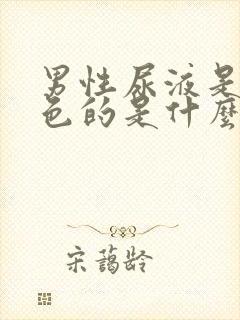 男性尿液是
色的是什麼
宋蔼龄